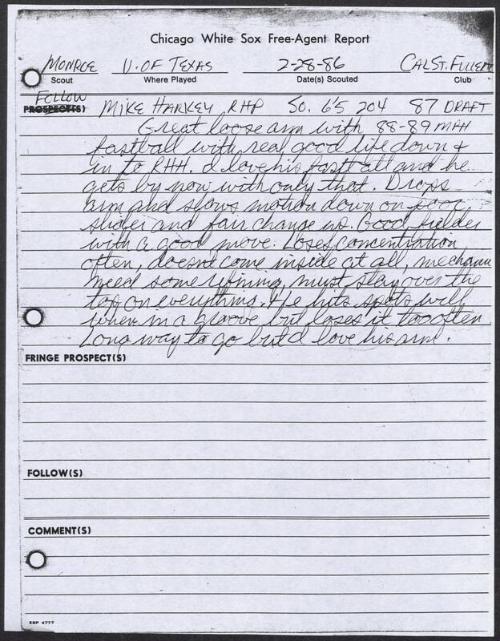 Chicago White Sox Free-Agent Report
MONROE U. OF TEXAS 2-28-86 CAL ST. FULLERTON
Scout Where Played Date(s) Scouted Club
FOLLOW
PROSPECT(S) MIKE HARKEY, RHP SO. 6'5 204 87 DRAFT
Great loose arm with 88-89 MPH
fastball with real good life down &
in to RHH. I love his fastball and he
gets by now with only that. Drops
arm and slows motion down on poor
slider and fair change up. Good fielder
with a good move. Loses concentration
often, doesnt come inside at all, mechanics
need some refining, must stay over the
top on everything. He hits spots well
when in a groove but loses it too often
Long way to go but I love his arm.
FRINGE PROSPECT(S)
FOLLOW(S)
COMMENT(S)